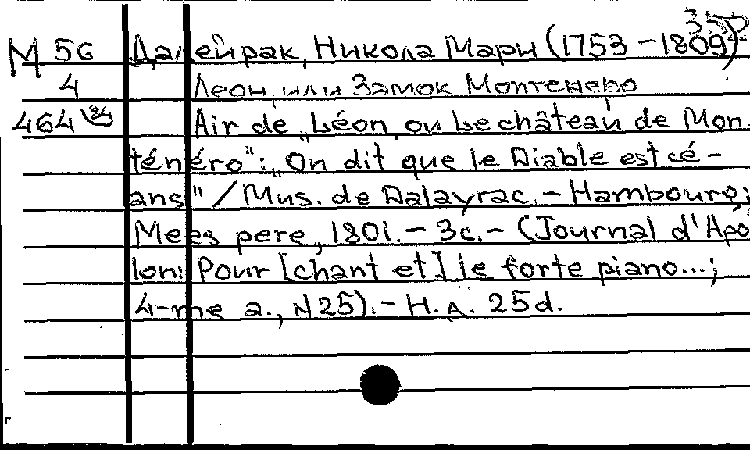 М 56 Далейрак, Никола Мари (1753-1809)
4 Леон, или Замок Монтенеро
464 Air de „Léon, ou Le château de Mon-
ténéro": „On dit que le Diable est cé-
ans" / Mus. de Dalayrac. - Hambourg;
Mees pere, 1801. - 3c. - (Journal d'Apo
lon: Pour [chant et] le forte piano...;
4-me a., N25). - Н.д. 25d.